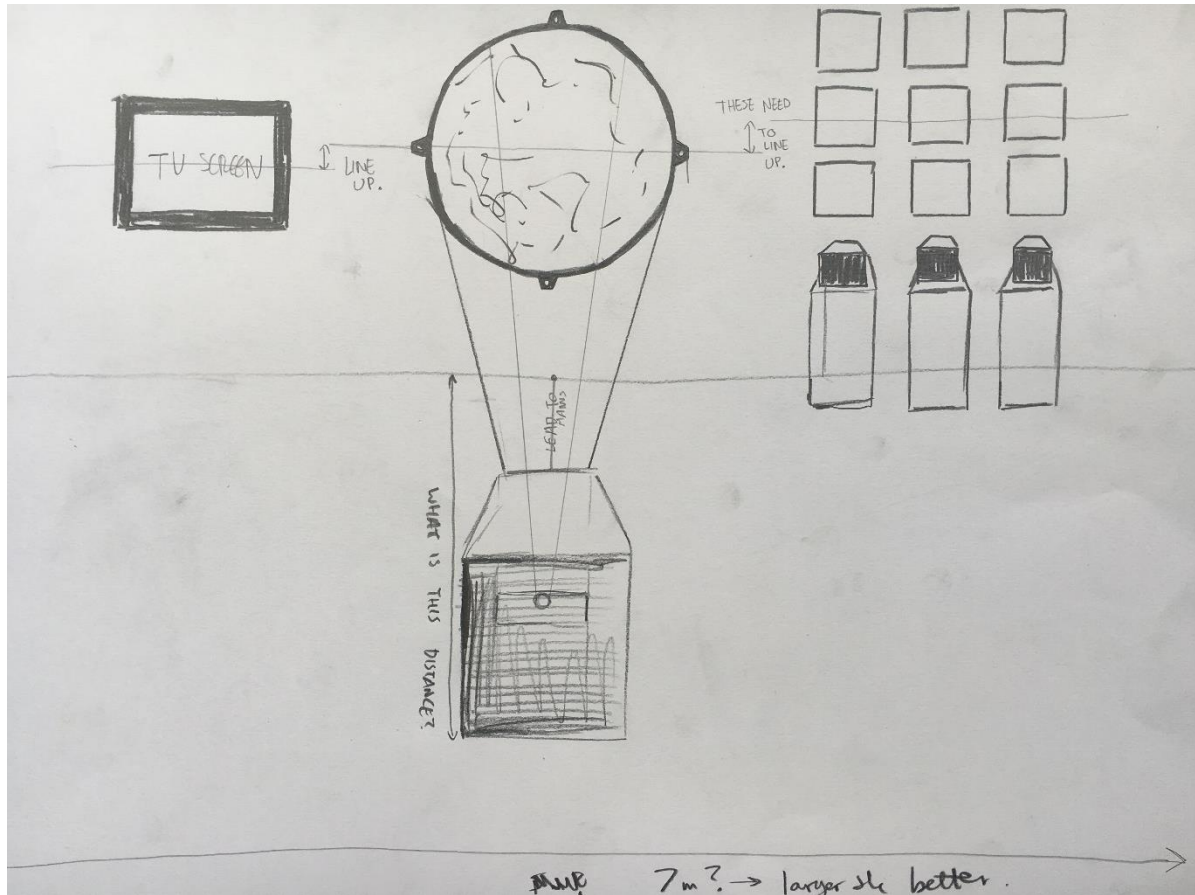 TV SCREEN
LINE
UP.
THESE NEED
TO
LINE
UP.
LEAD TO
MAINS
WHAT IS THIS DISTANCE?
7m? → larger the better.